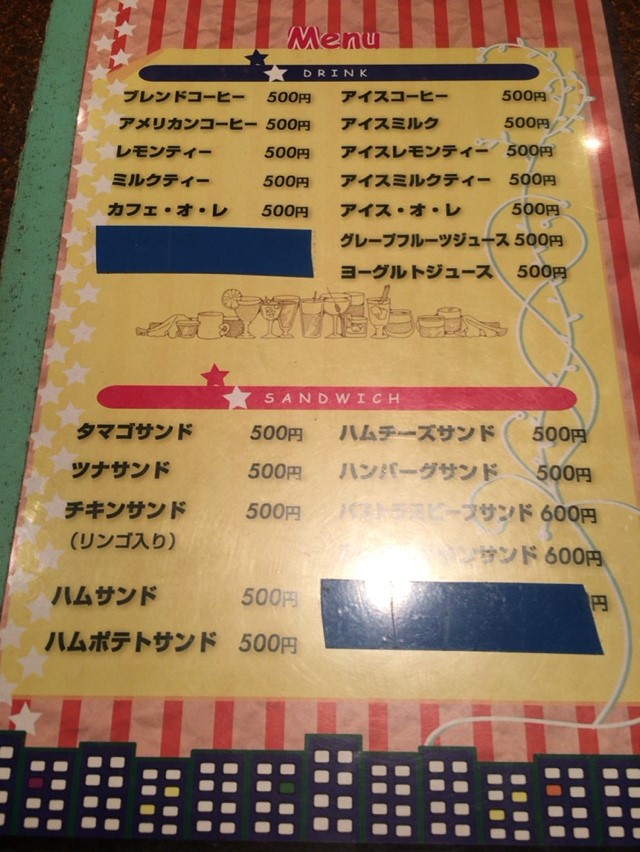 Menu
DRINK
ブレンドコーヒー 500円
アメリカンコーヒー 500円
レモンティー 500円
ミルクティー 500円
カフェ・オ・レ 500円
アイスコーヒー 500円
アイスミルク 500円
アイスレモンティー 500円
アイスミルクティー 500円
アイス・オ・レ 500円
グレープフルーツジュース 500円
ヨーグルトジュース 500円
SANDWICH
タマゴサンド 500円
ツナサンド 500円
チキンサンド 500円
(リンゴ入り)
ハムサンド 500円
ハムポテトサンド 500円
ハムチーズサンド 500円
ハンバーグサンド 500円
パストラミビーフサンド 600円
サンド 600円
円